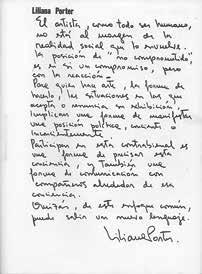 Liliana Porter
El artista, como todo ser humano,
no está al margen de la
realidad social que lo envuelve.
La posición de "no comprometido",
es en sí un compromiso, pero
con la reacción.
Para quién hace arte, la forma de
hacerlo, las situaciones en las que
acepta o renuncia su exhibición
implican una forma de manifestar
una posición política, conciente o
inconcientemente.
Participar en esta contrabienal es
una forma de precisar esta
conciencia y también una
forma de comunicación con
compañeros alrededor de esa
conciencia.
Quizás, de este enfoque común,
pueda salir un nuevo lenguaje.
Liliana Porter.